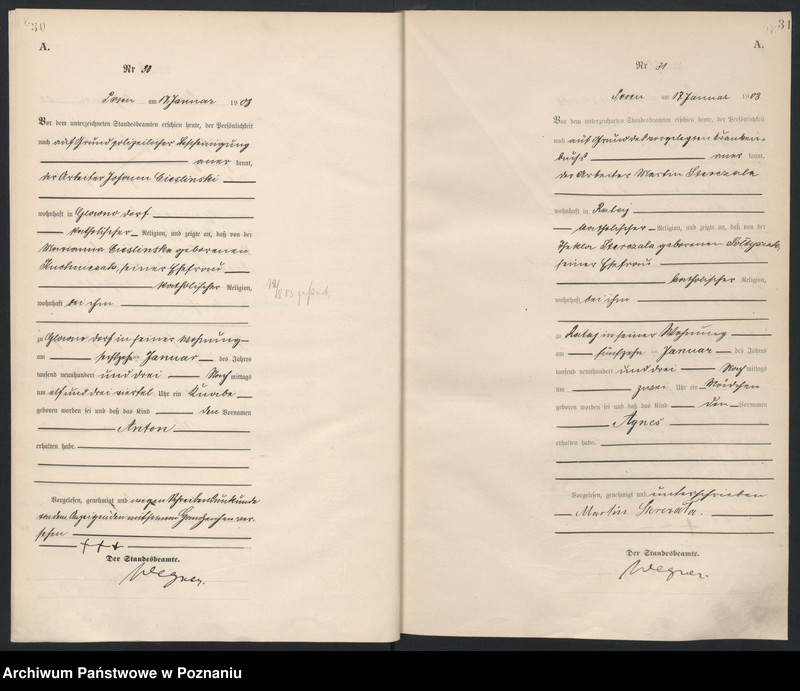 30
A.
Nr 30
Posen am 17 Januar 1903
Vor dem unterzeichneten Standesbeamten erschien heute, der Persönlichkeit
nach auf Grund polizeilicher Bescheinigung
aner kannt,
der Arbeiter Johann Cieslinski
wohnhaft in Glowno dorf
katholischer Religion, und zeigte an, daß von der
Marianna Cieslinska geborenen
seiner Ehefrau
katholischer Religion,
wohnhaft bei ihm
zu Glowno dorf in seiner Wohnung
am sechzehn ten Januar des Jahres
tausend neunhundert und drei Nach mittags
um elf und drei viertel Uhr ein Knabe
geboren worden sei und daß das Kind den Vornamen
Anton
erhalten habe.
Vorgelesen, genehmigt und wegen Schreibensunkunde
von dem Anzeigenden mit seinem Handzeichen ver-
sehen
+++
Der Standesbeamte.
Wegner.
31
A.
Nr 31
Posen am 17 Januar 1903
Vor dem unterzeichneten Standesbeamten erschien heute, der Persönlichkeit
nach auf Grund des vorgelegten Kranken-
buchs aner kannt,
der Arbeiter Martin Sterczala
wohnhaft in Rataj
katholischer Religion, und zeigte an, daß von der
Thekla Sterczala geborenen
seiner Ehefrau
katholischer Religion,
wohnhaft bei ihm
zu Rataj in seiner Wohnung
am fünfzehn ten Januar des Jahres
tausend neunhundert und drei Nach mittags
um zwei Uhr ein Mädchen
geboren worden sei und daß das Kind den Vornamen
Agnes
erhalten habe.
Vorgelesen, genehmigt und unterschrieben
Martin
Der Standesbeamte.
Wegner.
Archiwum Państwowe w Poznaniu